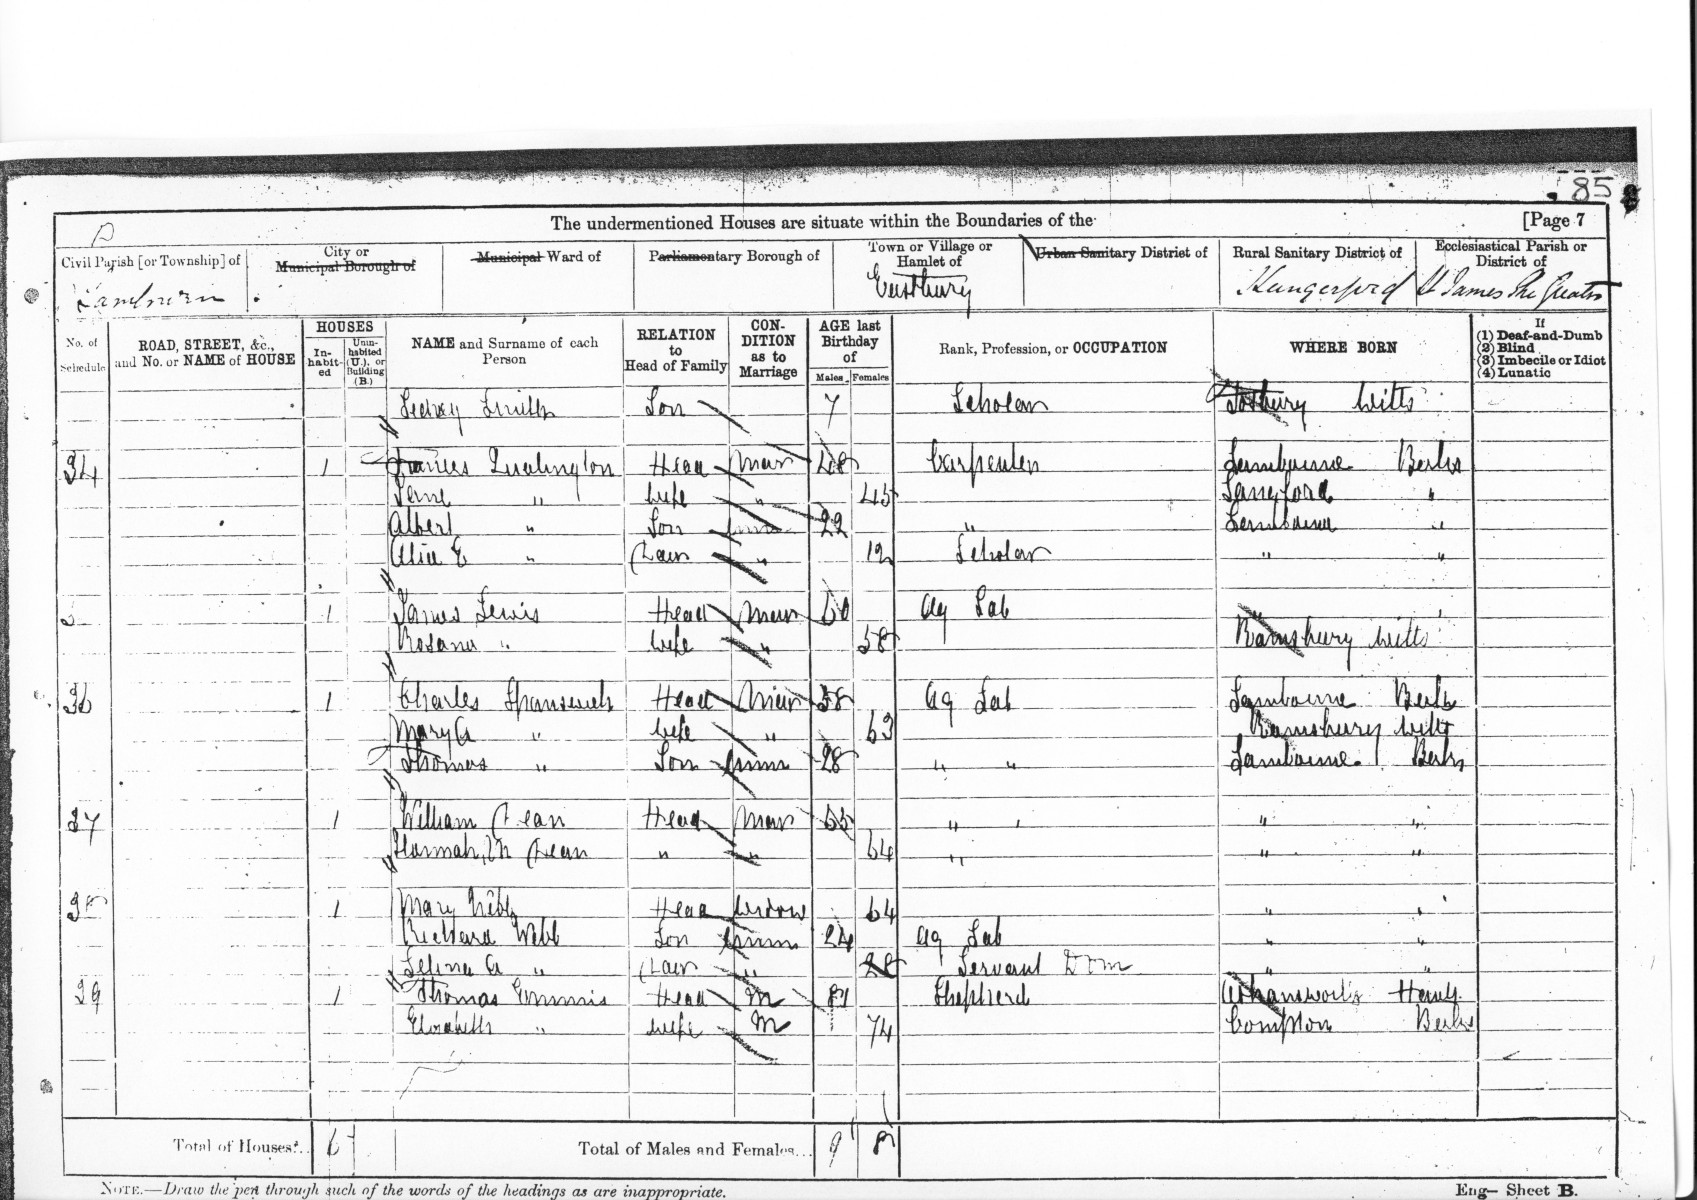 85
The undermentioned Houses are situate within the Boundaries of the
[Page 7
Civil Parish [or Township] of
City or Municipal Borough of
Municipal Ward of
Parliamentary Borough of
Town or Village or Hamlet of
Urban Sanitary District of
Rural Sanitary District of
Ecclesiastical Parish or District of
Eastbury Hungerford St James The Greater
No. of Schedule
ROAD, STREET, &c., and No. or NAME of HOUSE
HOUSES
In-habit-ed
Unin-habited (U.), or Building (B.)
NAME and Surname of each Person
RELATION to Head of Family
CON-DITION as to Marriage
AGE last Birthday of
Males Females
Rank, Profession, or OCCUPATION
WHERE BORN
If
(1) Deaf-and-Dumb
(2) Blind
(3) Imbecile or Idiot
(4) Lunatic
Smith Son 7 Scholar Wilts
34 1 Head Mar 48 Carpenter Lambourne Berks
Jane " wife " 45 "
Albert " Son 22 " Lambourne "
Alice E " Daur " 12 Scholar " "
1 James Lewis Head Mar 60 Ag Lab
Rosanna " wife " 58 Ramsbury Wilts
36 1 Charles Head Mar 58 Ag Lab Lambourne Berks
Mary A " wife " 63 Ramsbury Wilts
Thomas " Son Unm 28 " " Lambourne Berks
37 1 William Dean Head Mar 65 " " " "
Hannah M Dean " " 64 " " "
38 1 Mary Webb Head Widow 64 " "
Richard Webb Son Unm 24 Ag Lab " "
Selina A " Daur " 28 Servant Dom " "
39 1 Thomas Head M 81 Shepherd Hants
Elizabeth " wife M 74 Compton Berks
Total of Houses... 6
Total of Males and Females... 9 8
NOTE.—Draw the pen through such of the words of the headings as are inappropriate.
Eng— Sheet B.